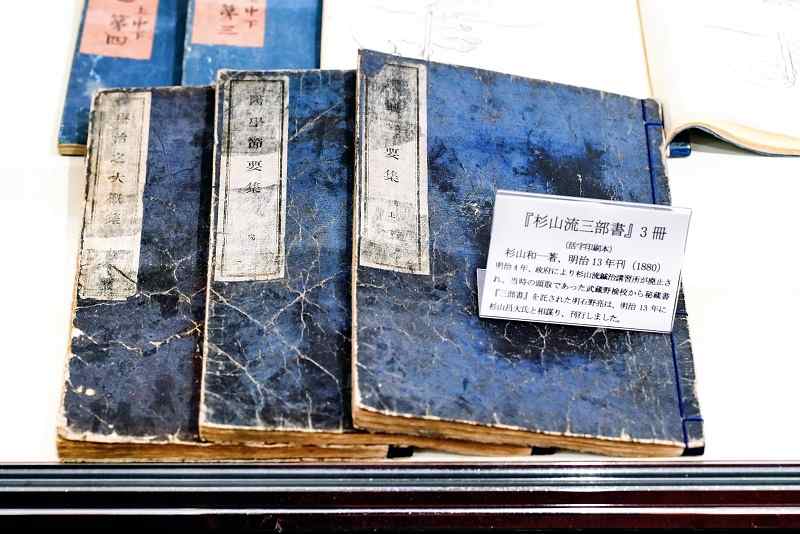 上中下
第四
中下
第三
治之大概集
醫學節要集
要集
『杉山流三部書』3冊
(活字印刷本)
杉山和一著、明治13年刊（1880）
明治4年、政府により杉山流鍼治講習所が廃止さ
れ、当時の頭取であった武蔵野検校から秘蔵書
『三部書』を託された明石野亮は、明治 13 年に
杉山昌大氏と相謀り、刊行しました。